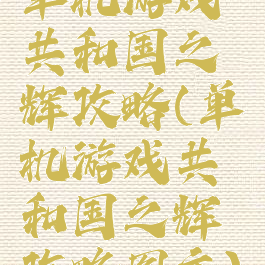 单机游戏
共和国之
辉攻略(单
机游戏共
和国之辉
攻略图文)